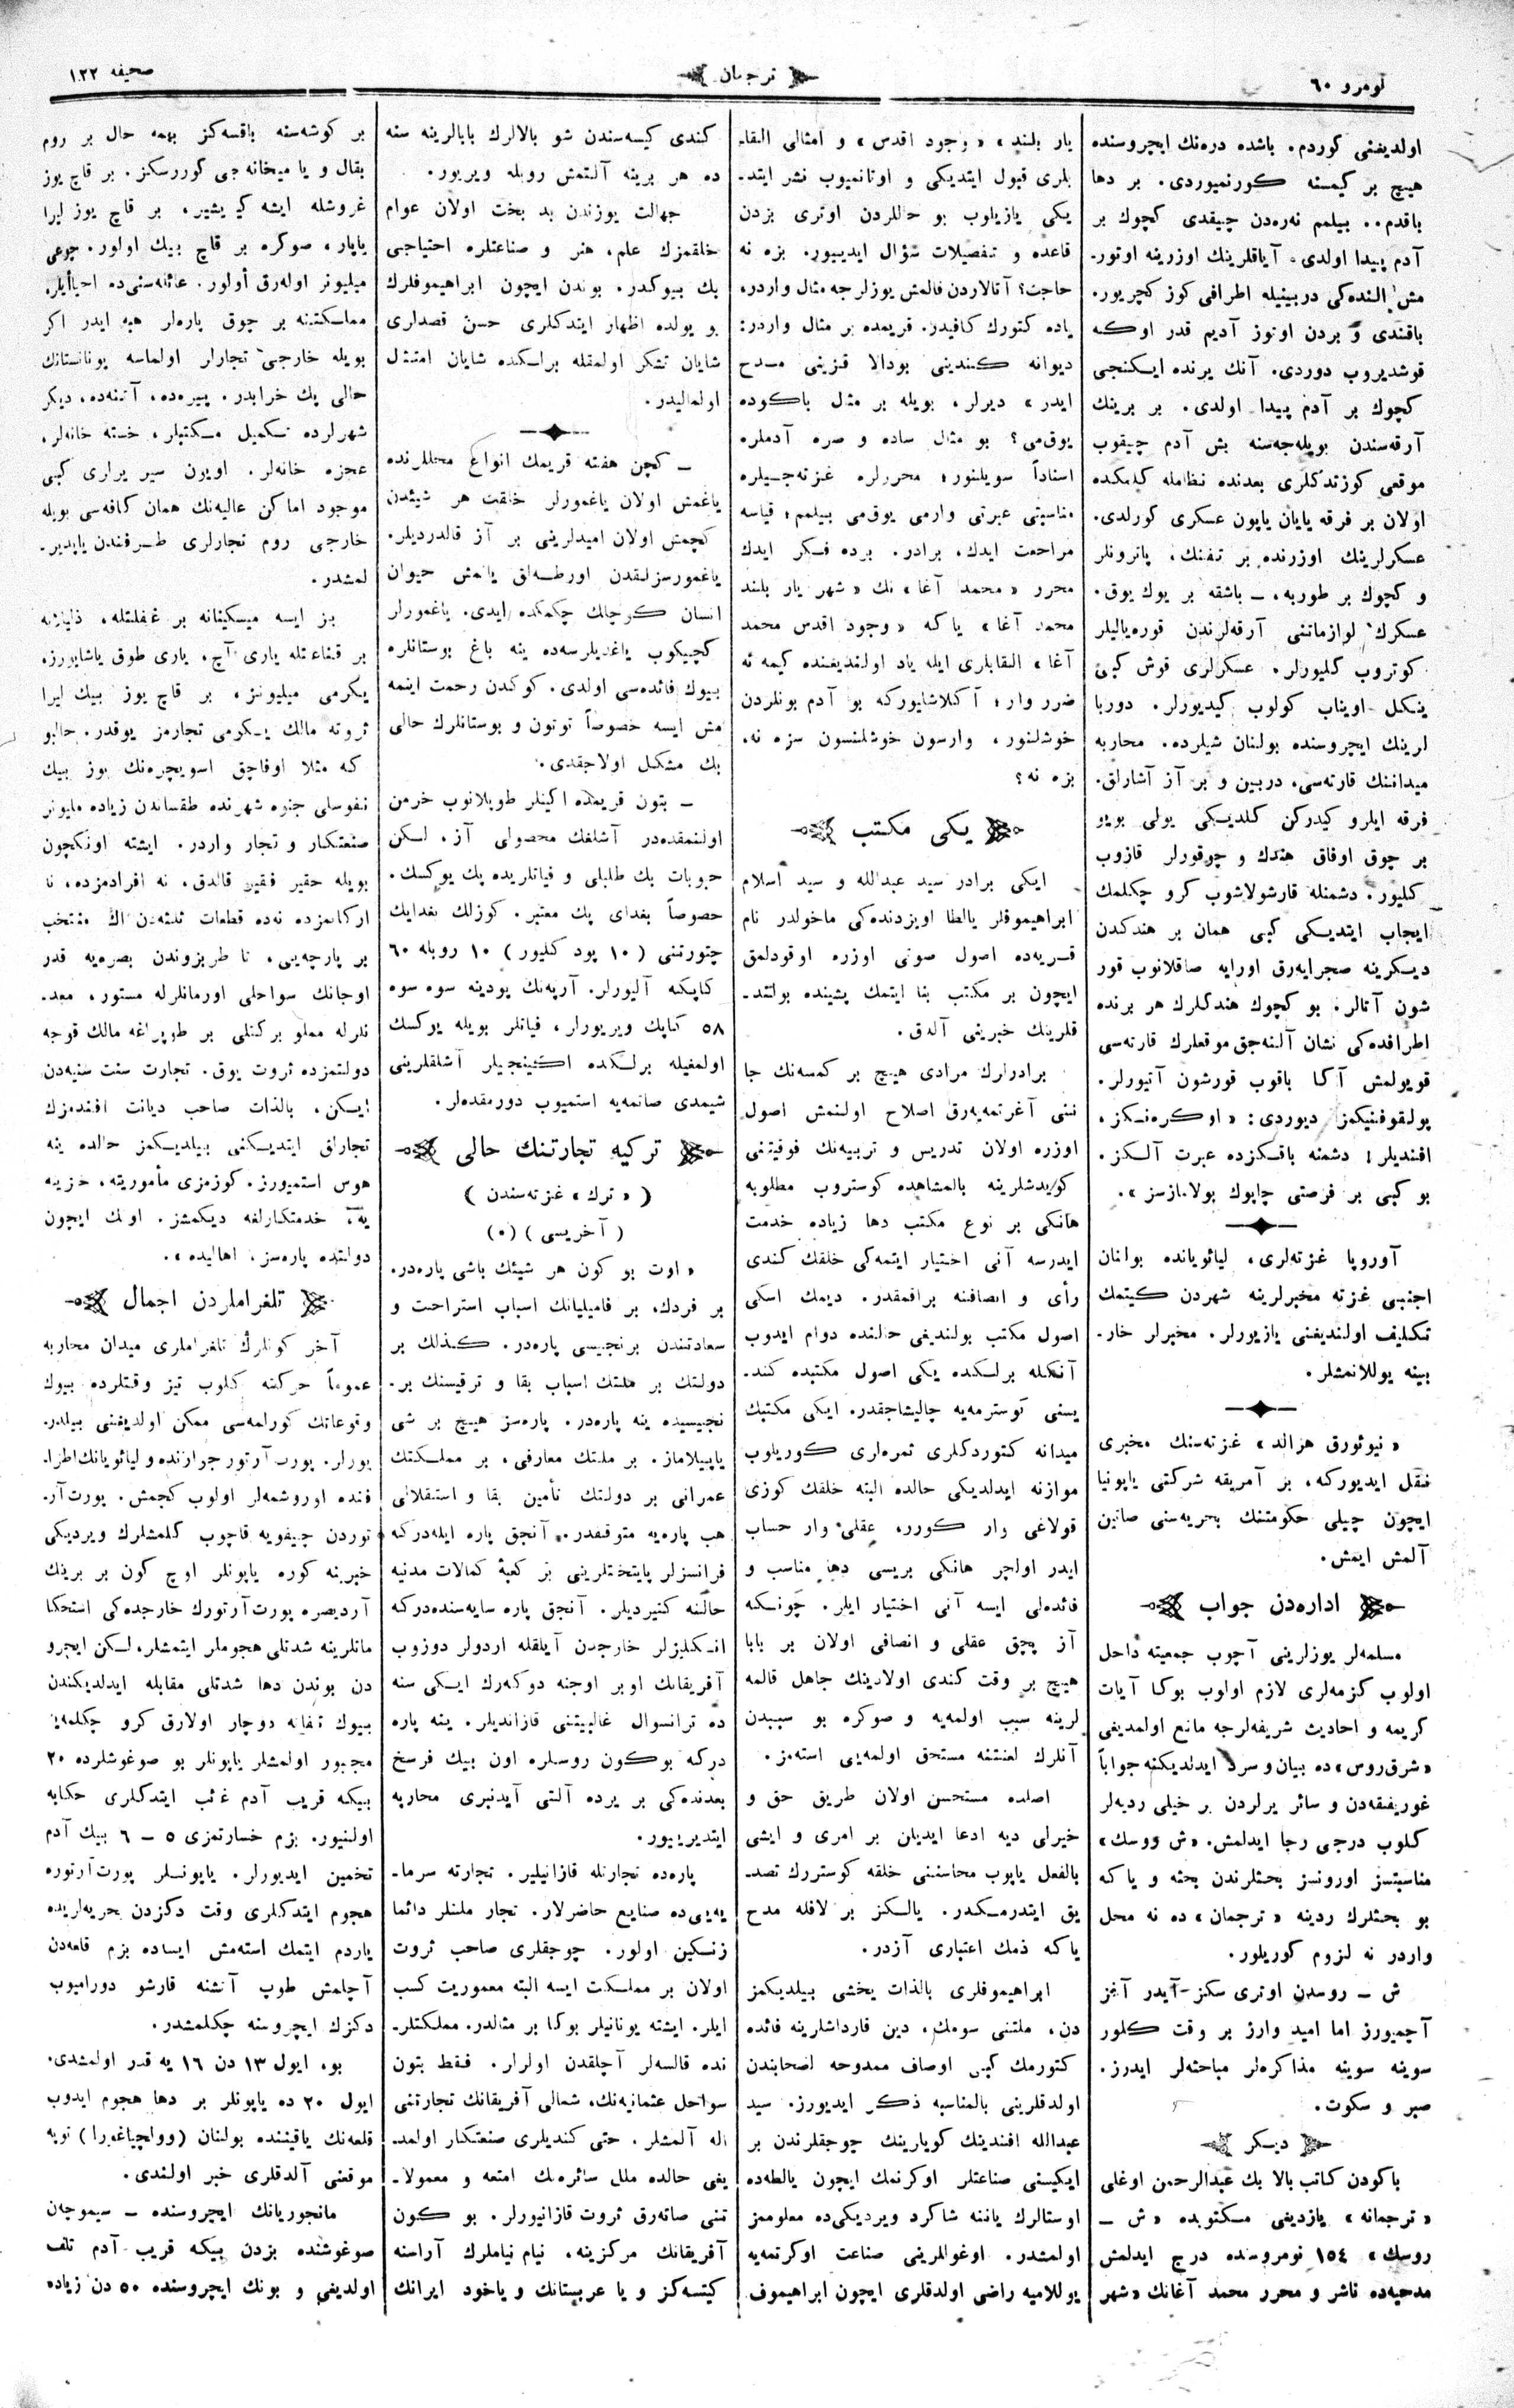 نومرو ٦٠
ترجمان
صحیفه ١٢٢
اولدیغنی کوردم. باشده دره‌نك ایچروسنده
هیچ بر کیمسنه کورنمیوردی. بر دها
باقدم.. بیلمم نه‌ره‌دن چیقدی کچوك بر
آدم پیدا اولدی، آیاقلرینك اوزرینه اوتور-
مش النده‌کی دربینیله اطرافی کوز کچریور.
باقندی و بردن اوتوز آدیم قدر اوکه
قوشدیروب دوردی. آنك یرنده ایکنجی
کچوك بر آدم پیدا اولدی. بر برینك
آرقه‌سندن بویله‌جه‌سنه بش آدم چیقوب
موقعی کوزتدکلری بعدنده نظامله کلمکده
اولان بر فرقه یایان یاپون عسکری کورلدی.
عسکرلرینك اوزرنده بر تفنك، پاترونلر
و کچوك بر طوربه، ــ باشقه بر یوك یوق.
عسکرك لوازماتنی آرقه‌لرندن قوره‌یالیلر
کوتروب کلیورلر. عسکرلری قوش کبی
ینکل اویناب کولوب کیدیورلر. دوربا
لرینك ایچروسنده بولنان شیلرده. محاربه
میداننك قارته‌سی، دربین و بر آز آشارلق.
فرقه ایلرو کیدرکن کلدیکی یولی بویو
بر چوق اوفاق هندك و چوقورلر قازوب
کلیور. دشمنله قارشولاشوب کرو چکلمك
ایجاب ایتدیکی کبی همان بر هندکدن
دیکرینه صجرایه‌رق اورایه صاقلانوب قور
شون آتالر. بو کچوك هندکلرك هر برنده
اطرافده‌کی نشان آلنه‌جق موقعلرك قارته‌سی
قویولمش آکا باقوب قورشون آتیورلر.
پولقوفنیکمز دیوردی: «اوکره‌نکز،
افندیلر! دشمنه باقکزده عبرت آلکز.
بو کبی بر فرصتی چاپوك بولامازسز».
آوروپا غزته‌لری، لیائویانده بولنان
اجنبی غزته مخبرلرینه شهردن کیتمك
تکلیف اولندیغنی یازیورلر. مخبرلر خار-
بینه یوللانمشلر.
«نیوئورق هرالد» غزته‌سنك مخبری
نقل ایدیورکه، بر آمریقه شرکتی یاپونیا
ایچون چیلی حکومتنك بحریه‌سنی صاتین
آلمش ایمش.
اداره‌دن جواب
مسلمه‌لر یوزلرینی آچوب جمعیته داخل
اولوب کزمه‌لری لازم اولوب بوکا آیات
کریمه و احادیث شریفه‌لرجه مانع اولمدیغی
«شرق روس» ده بیان و سرد ایدلدیکنه جواباً
غوریفقه‌دن و سائر یرلردن بر خیلی ردیه‌لر
کلوب درجی رجا ایدلمش. «ش روسك»
مناسبتسز اورونسز بحثلرندن بحثه و یا که
بو بحثلرك ردینه «ترجمان» ده نه محل
واردر نه لزوم کوریلور.
ش ــ روسدن اوتری سکز-آیدر آغز
آچمیورز اما امید وارز بر وقت کلور
سوینه سوینه مذاکره‌لر مباحثه‌لر ایدرز.
صبر و سکوت.
دیکر
باکودن کاتب بالا بك عبدالرحمن اوغلی
«ترجمانه» یازدیغی مکتوبده «ش ــ
روسك» ١٥٤ نومروسنده درج ایدلمش
مدحیه‌ده ناشر و محرر محمد آغانك «شهر
یار بلند»، «وجود اقدس» و امثالی القا.
بلری قبول ایتدیکی و اوتانمیوب نشر ایتد-
یکی یازیلوب بو حاللردن اوتری بزدن
قاعده و تفصیلات سؤال ایدیبیور. بزه نه
حاجت؟ آتالاردن قالمش یوزلرجه مثال واردر،
یاده کتورك کافیدر. قریمده بر مثال واردر:
دیوانه کندینی بودالا قزینی مدح
ایدر» دیرلر، بویله بر مثل باکوده
یوقمی؟ بو مثال ساده و صره آدملره
اسناداً سویلنور؛ محررلره غزته‌جیلره
مناسبتی عبرتی وارمی یوقمی بیلمم؛ قیاسه
مراجعت ایدك، برادر. برده فکر ایدك
محرر «محمد آغا» نك «شهر یار بلند
محمد آغا» یا که «وجود اقدس محمد
آغا» القابلری ایله یاد اولندیغنده کیمه نه
ضرر وار؛ آکلاشایورکه بو آدم بونلردن
خوشلنور، وارسون خوشلنسون سزه نه،
بزه نه؟
یکی مکتب
ایکی برادر سید عبدالله و سید اسلام
ابراهیموفلر یالطا اویزدنده‌کی ماخولدر نام
قریه‌ده اصول صوتی اوزره اوقودلمق
ایچون بر مکتب بنا ایتمك پشینده بولند-
قلرینك خبرینی آلدق.
برادرلرك مرادی هیچ بر کمسه‌نك جا
ننی آغرتمه‌یه‌رق اصلاح اولنمش اصول
اوزره اولان تدریس و تربیه‌نك فوقیتنی
کویدشلرینه بالمشاهده کوستروب مطلوبه
هانکی بر نوع مکتب دها زیاده خدمت
ایدرسه آنی اختیار ایتمه‌کی خلقك کندی
رأی و انصافنه براقمقدر. دیمك اسکی
اصول مکتب بولندیغی حالنده دوام ایدوب
آنکله برلکده یکی اصول مکتبده کند-
یسنی کوسترمه‌یه چالیشاجقدر. ایکی مکتبك
میدانه کتوردکلری ثمره‌لری کوریلوب
موازنه ایدلدیکی حالده البته خلقك کوزی
قولاغی وار کورر، عقلی وار حساب
ایدر اولچر هانکی بریسی دها مناسب و
فائده‌لی ایسه آنی اختیار ایلر. چونکه
آز پچق عقلی و انصافی اولان بر بابا
هیچ بر وقت کندی اولادینك جاهل قالمه
لرینه سبب اولمه‌یه و صوکره بو سببدن
آنلرك لعنتنه مستحق اولمه‌یی استه‌مز.
اصلده مستحسن اولان طریق حق و
خیرلی دیه ادعا ایدیلن بر امری و ایشی
بالفعل یاپوب محاسننی خلقه کوسترزك تصد-
یق ایتدرمکدر. یالکز بر لافله مدح
یا که ذمك اعتباری آزدر.
ابراهیموفلری بالذات یخشی بیلدیکمز
دن، ملتنی سومك، دین قارداشلرینه فائده
کتورمك کبی اوصاف ممدوحه اصحابندن
اولدقلرینی بالمناسبه ذکر ایدیورز. سید
عبدالله افندینك کویارینك چوجقلرندن بر
ایکیسنی صناعتلر اوکرنمك ایچون یالطه‌ده
اوستالرك یاننه شاکرد ویردیکی‌ده معلوممز
اولمشدر. اوغوللرینی صناعت اوکرتمه‌یه
یوللامیه راضی اولدقلری ایچون ابراهیموف
کندی کیسه‌سندن شو بالالرك بابالرینه سنه
ده هر برینه آلتمش روبله ویریور.
جهالت یوزندن بد بخت اولان عوام
خلقمزك علم، هنر و صناعتلره احتیاجی
بك بیوکدر. بوندن ایچون ابراهیموفلرك
بو یولده اظهار ایتدکلری حسن قصدلری
شایان تشکر اولمقله برلکده شایان امتثال
اولمالیدر.
ــ کچن هفته قریمك انواع محللرنده
یاغمش اولان یاغمورلر خلقت هر شیئدن
کچمش اولان امیدلرینی بر آز قالدردیلر.
یاغمورسزلقدن اورطه‌لق یانمش حیوان
انسان کرچالك چکمکده ایدی. یاغمورلر
کچیکوب یاغدیلرسه‌ده ینه باغ بوستانلره
بیوك فائده‌سی اولدی. کوکدن رحمت اینمه
مش ایسه خصوصاً توتون و بوستانلرك حالی
بك مشکل اولاجقدی.
ــ بتون قریمده اکینلر طوپلانوب خرمن
اولنمقده‌در آشلقك محصولی آز، لکن
حبوبات بك طلبلی و فیاتلریده پك یوکسك.
خصوصاً بغدای پك معتبر. کوزلك بغدایك
چتورتنی (١٠ پود کلیور) ١٠ روبله ٦٠
کاپکه آلیورلر. آرپه‌نك پودینه سوه سوه
٥٨ کاپك ویریورلر، فیاتلر بویله یوکسك
اولمغیله برلکده اکینجیلر آشلقلرینی
شیمدی صاتمه‌یه استمیوب دورمقده‌لر.
ترکیه تجارتنك حالی
(«ترك» غزته‌سندن)
(آخریسی) (٥)
«اوت بو کون هر شیئك باشی پاره‌در.
بر فردك، بر فامیلیانك اسباب استراحت و
سعادتندن برنجیسی پاره‌در. کذلك بر
دولتك بر ملتك اسباب بقا و ترقیسنك بر-
نجیسیده ینه پاره‌در. پاره‌سز هیچ بر شی
یاپیلاماز. بر ملتك معارفی، بر مملکتك
عمرانی بر دولتك تأمین بقا و استقلالی
هپ پاره‌یه متوقفدر. آنجق پاره ایله‌درکه
فرانسزلر پایتختلرینی بر کعبهٔ کمالات مدنیه
حالنه کتیردیلر. آنجق پاره سایه‌سنده‌درکه
انکلیزلر خارجدن آیلقله اردولر دوزوب
آفریقانك اوبر اوجنه دوکه‌رك ایکی سنه
ده ترانسوال غالبیتنی قازاندیلر. ینه پاره
درکه بوکون روسلره اون بیك فرسخ
بعدنده‌کی بر یرده آلتی آیدنبری محاربه
ایتدیرییور.
پاره‌ده تجارتله قازانیلیر. تجارته سرما-
یه‌یی‌ده صنایع حاضرلار. تجار ملتلر دائما
زنکین اولور. چوجقلری صاحب ثروت
اولان بر مملکت ایسه البته معموریت کسب
ایلر. ایشته یونانیلر بوکا بر مثالدر. مملکتلر-
نده قالسه‌لر آچلقدن اولرلر. فقط بتون
سواحل عثمانیه‌نك، شمالی آفریقانك تجارتنی
اله آلمشلر. حتی کندیلری صنعتکار اولمد-
یغی حالده ملل سائره‌نك امتعه و معمولا-
تنی صاته‌رق ثروت قازانیورلر. بو کون
آفریقانك مرکزینه، نیام نیاملرك آراسنه
کیتسه‌کز و یا عربستانك و یاخود ایرانك
بر کوشه‌سنه باقسه‌کز بهمه حال بر روم
بقال و یا میخانه‌جی کوررسکز. بر قاچ یوز
غروشله ایشه کیریشیر، بر قاچ یوز لیرا
یاپار، صوکره بر قاچ بیك اولور. چوغی
میلیونر اوله‌رق أولور. عائله‌سنی‌ده احیاأیلر،
مملکتنه بر چوق پاره‌لر هبه ایدر اکر
بویله خارجی تجارلر اولماسه یونانستانك
حالی پك خرابدر. پیره‌ده، آتنه‌ده، دیکر
شهرلرده تکمیل مکتبلر، خسته خانه‌لر،
عجزه خانه‌لر. اویون سیر یرلری کبی
موجود اماکن عالیه‌نك همان کافه‌سی بویله
خارجی روم تجارلری طرفندن یاپدیر-
لمشدر.
بز ایسه میسکینانه بر غفلتله، ذلیلانه
بر قناعتله یاری آچ، یاری طوق یاشایورز.
یکرمی میلیونز، بر قاچ یوز بیك لیرا
ثروته مالك یکرمی تجارمز یوقدر. حالبو
که مثلا اوفاچق اسویچره‌نك یوز بیك
نفوسلی جنوه شهرنده طقساندن زیاده ملیونر
صنعتکار و تجار واردر. ایشته اونکچون
بویله حقیر فقیر قالدق. نه افرادمزده، نه
ارکانمزده نه‌ده قطعات ثلثه‌دن اك منتخب
بر پارچه‌یی، تا طربزوندن بصره‌یه قدر
اوجانك سواحلی اورمانلرله مستور، معد-
نلرله مملو برکتلی بر طوپراغه مالك قوجه
دولتمزده ثروت یوق. تجارت سنت سنیه‌دن
ایسکن، بالذات صاحب دیانت افندمزك
تجارلق ایتدیکنی بیلدیکمز حالده ینه
هوس استمیورز. کوزمزی مأموریته، خزینه
یه، خدمتکارلغه دیکمشز. اونك ایچون
دولتده پاره‌سز، اهالیده».
تلغراملردن اجمال
آخر کونلرك تلغراملری میدان محاربه
عموماً حرکته کلوب تیز وقتلرده بیوك
وقوعاتك کورلمه‌سی ممکن اولدیغنی بیلدر-
یورلر. پورت آرتور جوارنده و لیائویانك اطرا-
فنده اوروشمه‌لر اولوب کچمش. پورت آر-
توردن چیفویه قاچوب کلمشلرك ویردیکی
خبرینه کوره یاپونلر اوچ کون بر برینك
آردیصره پورت آرتورك خارجده‌کی استحکا
ماتلرینه شدتلی هجوملر ایتمشلر. لکن ایچرو
دن بوندن دها شدتلی مقابله ایدلدیکندن
بیوك تلفاته دوچار اولارق کرو چکلمه‌یه
مجبور اولمشلر یاپونلر بو صوغوشلرده ٢٠
بیکه قریب آدم غائب ایتدکلری حکایه
اولنیور. بزم خسارتمزی ٥ ــ ٦ بیك آدم
تخمین ایدیورلر. یاپونلر پورت آرتوره
هجوم ایتدکلری وقت دکزدن بحریه‌لریده
یاردم ایتمك استه‌مش ایساده بزم قلعه‌دن
آچلمش طوپ آتشنه قارشو دورامیوب
دکزك ایچروسنه چکلمشدر.
بو، ایول ١٣ دن ١٦ یه قدر اولمشدی.
ایول ٢٠ ده یاپونلر بر دها هجوم ایدوب
قلعه‌نك یاقیننده بولنان (وولچیاغورا) توپه
موقعنی آلدقلری خبر اولندی.
مانجوریانك ایچروسنده ــ سیموچه‌ن
صوغوشنده بزدن بیکه قریب آدم تلف
اولدیغی و بونك ایچروسنده ٥٠ دن زیاده